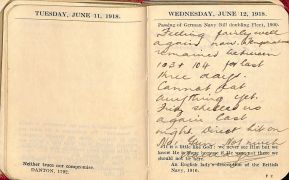 TUESDAY, JUNE 11, 1918.
Neither truce nor compromise.
DANTON, 1792.
WEDNESDAY, JUNE 12, 1918.
Passing of German Navy Bill doubling Fleet, 1900.
Feeling fairly well
again now. Temperature
remained between
103 & 104 for last
three days.
Cannot eat
anything yet.
Fritz shelled us
again last
night. Direct hit on
No
It is a little like God: we never see Him but we
know He is there because if He were not there we
should not be here.
An English lady's description of the British
Navy, 1916.